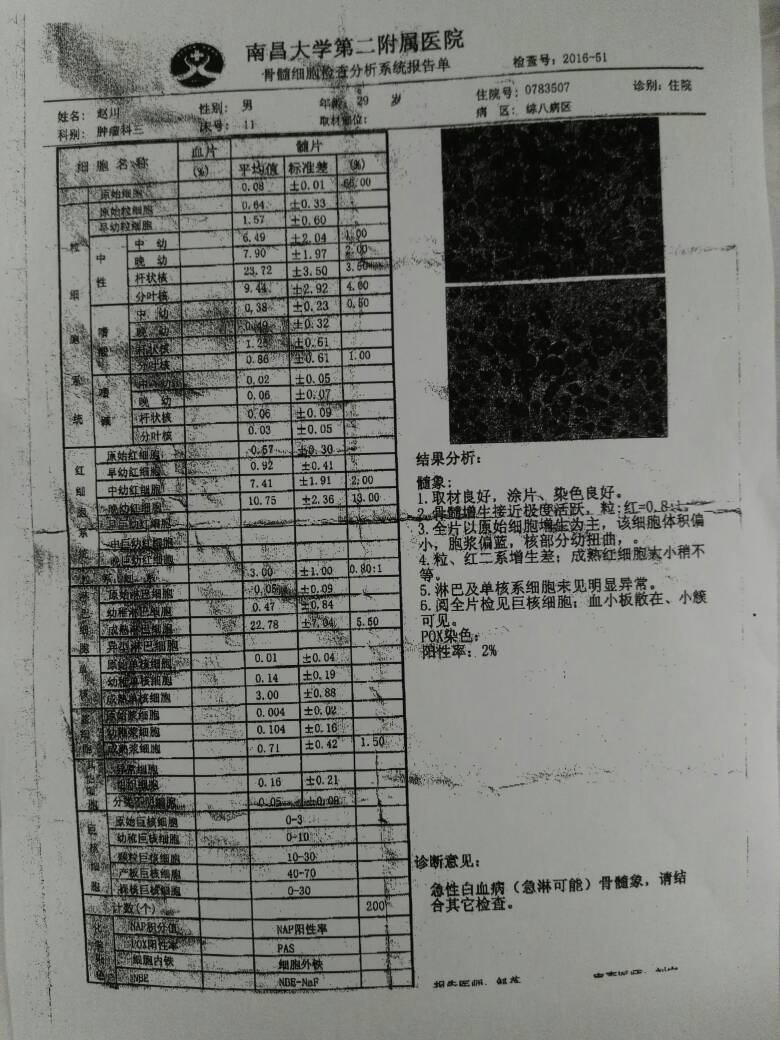 南昌大学第二附属医院
骨髓细胞检查分析系统报告单
检查号: 2016-51
姓名: 赵川 性别: 男 年龄: 29 岁 住院号: 0783507 诊别: 住院
科别: 肿瘤科三 床号: 11 取材部位: 病 区: 综八病区
细 胞 名 称 血片 (%) 髓片
平均值 标准差 (%)
粒细胞系统
原始细胞 0.08 ±0.01 66.00
原始粒细胞 0.64 ±0.33
早幼粒细胞 1.57 ±0.60
中性 中 幼 6.49 ±2.04 1.00
晚 幼 7.90 ±1.97 2.00
杆状核 23.72 ±3.50 3.50
分叶核 9.44 ±2.92 4.00
嗜酸 中 幼 0.38 ±0.23 0.50
晚 幼 0.49 ±0.32
杆状核 ±0.61
分叶核 0.86 ±0.61 1.00
嗜碱 中 幼 0.02 ±0.05
晚 幼 0.06 ±0.07
杆状核 0.06 ±0.09
分叶核 0.03 ±0.05
红细胞系统
原始红细胞 0.57 ±0.30
早幼红细胞 0.92 ±0.41
中幼红细胞 7.41 ±1.91 2.00
晚幼红细胞 10.75 ±2.36 13.00
早巨幼红细胞
中巨幼红细胞
晚巨幼红细胞
粒 系 : 红 系 3.00 ±1.00 0.80:1
原始淋巴细胞 0.05 ±0.09
幼稚淋巴细胞 0.47 ±0.84
成熟淋巴细胞 22.78 ±7.04 5.50
异型淋巴细胞
原始单核细胞 0.01 ±0.04
幼稚单核细胞 0.14 ±0.19
成熟单核细胞 3.00 ±0.88
原始浆细胞 0.004 ±0.02
幼稚浆细胞 0.104 ±0.16
成熟浆细胞 0.71 ±0.42 1.50
异常细胞
组织细胞 0.16 ±0.21
分类不明细胞 0.05 ±0.09
巨核细胞
原始巨核细胞 0-3
幼稚巨核细胞 0-10
颗粒巨核细胞 10-30
产板巨核细胞 40-70
裸核巨核细胞 0-30
计数(个) 200
NAP积分值 NAP阳性率
POX阳性率 PAS
细胞内铁 细胞外铁
NBE NBE-NaF
结果分析:
髓象:
1.取材良好，涂片、染色良好。
2.骨髓增生接近极度活跃，粒:红=0.8:1。
3.全片以原始细胞增生为主，该细胞体积偏
小，胞浆偏蓝，核部分幼扭曲，。
4.粒、红二系增生差；成熟红细胞大小稍不
等。
5.淋巴及单核系细胞未见明显异常。
6.阅全片检见巨核细胞；血小板散在、小簇
可见。
POX染色:
阳性率: 2%
诊断意见:
急性白血病（急淋可能）骨髓象，请结
合其它检查。
报告医师: